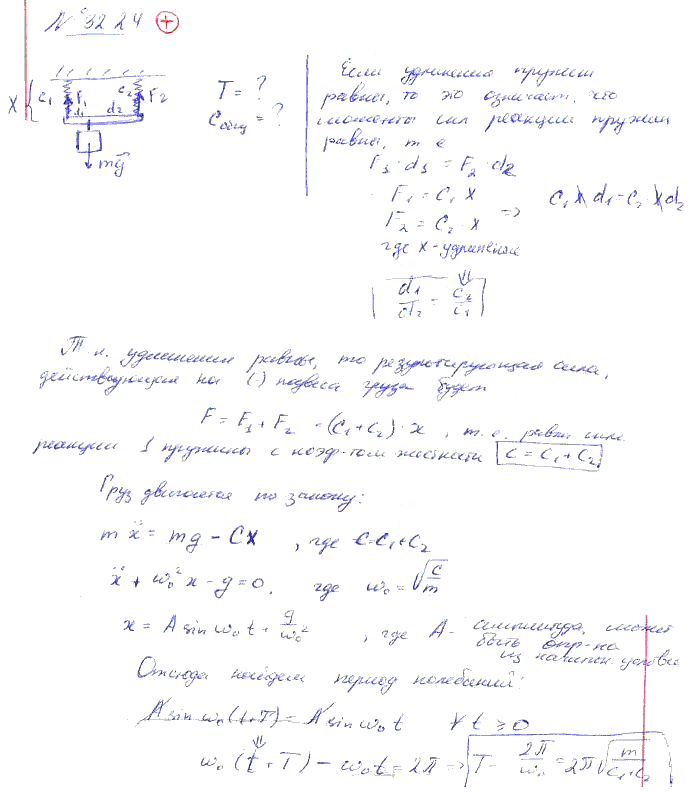 № 32 24 +
X { C₁ F₁ C₂ F₂
d₁ d₂
mg
T = ?
Cобщ = ?
Если удлинения пружин
равны, то это означает, что
моменты сил реакции пружин
равны, т е
F₁ · d₁ = F₂ · d₂
F₁ = C₁ X
F₂ = C₂ · X
=> C₁ X d₁ = C₂ X d₂
где X - удлинение
⇓
d₁/d₂ = C₂/C₁
Т.к. удлинения равны, то результирующая сила,
действующая на (·) подвеса груза будет
F = F₁ + F₂ = (C₁ + C₂) · x , т.е. равна силе
реакции 1 пружины с коэф-том жесткости C = C₁ + C₂
Груз двигается по закону:
m ẍ = mg - CX , где C = C₁ + C₂
ẍ + ω₀² x - g = 0, где ω₀ = √(C/m)
x = A sin ω₀ t + g/ω₀² , где A - амплитуда, может
быть опр-на
из начальн. условий
Отсюда найдем период колебаний:
A sin ω₀ (t+T) = A sin ω₀ t ∀ t ≥ 0
⇓
ω₀ (t + T) - ω₀t = 2π => T = 2π/ω₀ = 2π √(m/(C₁ + C₂))